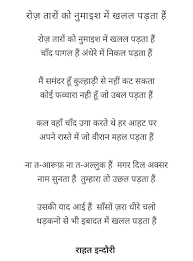 रोज़ तारों को नुमाइश में खलल पड़ता हैं
रोज़ तारों को नुमाइश में खलल पड़ता हैं
चाँद पागल हैं अंधेरे में निकल पड़ता हैं
मैं समंदर हूँ कुल्हाड़ी से नहीं कट सकता
कोई फव्वारा नही हूँ जो उबल पड़ता हैं
कल वहाँ चाँद उगा करते थे हर आहट पर
अपने रास्ते में जो वीरान महल पड़ता हैं
ना त-आरूफ़ ना त-अल्लुक हैं मगर दिल अक्सर
नाम सुनता हैं तुम्हारा तो उछल पड़ता हैं
उसकी याद आई हैं साँसों ज़रा धीरे चलो
धड़कनो से भी इबादत में खलल पड़ता हैं
राहत इन्दौरी